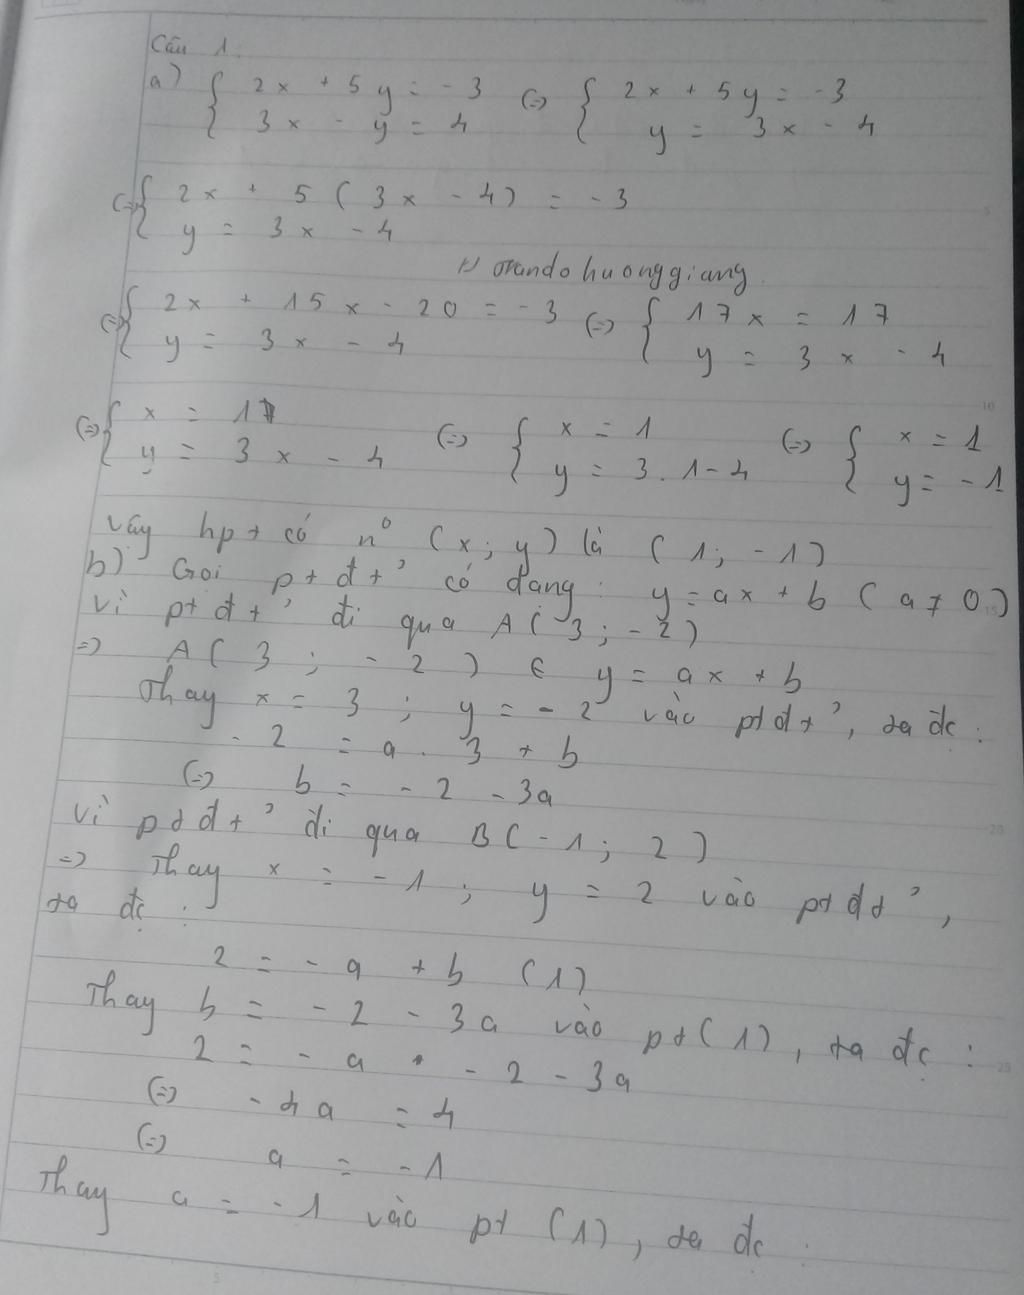 Câu 1.
a) { 2x + 5y = -3 (=) { 2x + 5y = -3
3x - y = 4 y = 3x - 4
(=) { 2x + 5(3x - 4) = -3
y = 3x - 4
orando huonggiang
(=) { 2x + 15x - 20 = -3 (=) { 17x = 17
y = 3x - 4 y = 3x - 4
(=) { x = 1 (=) { x = 1 (=) { x = 1
y = 3x - 4 y = 3.1-4 y = -1
Vậy hpt có n° (x; y) là (1; -1)
b) Gọi ptđt' có dạng: y = ax + b (a ≠ 0)
Vì ptđt' đi qua A(3; -2)
=) A(3; -2) ∈ y = ax + b
Thay x = 3; y = -2 vào ptđt', ta đc:
-2 = a.3 + b
(=) b = -2 -3a
Vì ptđt' đi qua B(-1; 2)
=) Thay x = -1; y = 2 vào ptđt',
ta đc:
2 = -a + b (1)
Thay b = -2 - 3a vào pt(1), ta đc:
2 = -a - 2 - 3a
(=) -4a = 4
(=) a = -1
Thay a = -1 vào pt (1), ta đc: